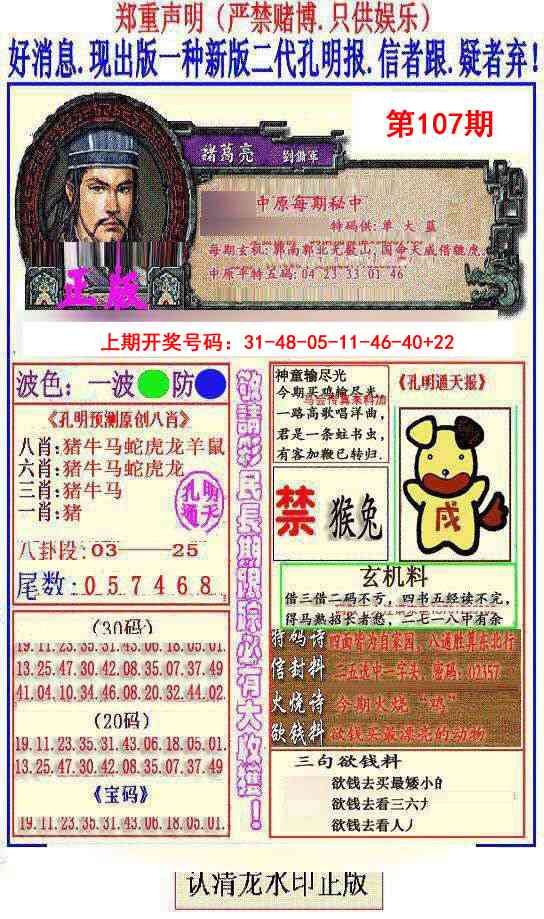 郑重声明（严禁赌博.只供娱乐）
好消息.现出版一种新版二代孔明报.信者跟.疑者弃!
第107期
諸葛亮 劉備軍
中原每期秘中
特码供:单大蓝
每期玄机:郭南郭北无數山,国命天威借貔虎.
中原平特五码:04 23 33 01 46
正版
上期开奖号码：31-48-05-11-46-40+22
波色：一波 防
《孔明预测原创八肖》
八肖:猪牛马蛇虎龙羊鼠
六肖:猪牛马蛇虎龙
三肖:猪牛马
一肖:猪
孔明
通天
八卦段:03——25
尾数:057468
(30码)
19.11.23.35.31.43.06.18.05.01.
13.25.47.30.42.08.35.07.37.49
41.04.10.34.46.08.20.32.44.02
(20码)
19.11.23.35.31.43.06.18.05.01.
13.25.47.30.42.08.35.07.37.49
《宝码》
19.11.23.35.31.43.06.18.05.01.
敬請彩民長期跟踪必有大收獲!
神童输尽光
今期买鸡输尽光
一路高歌唱洋曲,
君是一条蛀书虫,
有客加鞭已转归.
《孔明通天报》
禁 猴兔
戌
玄机料
借三借二码不亏,四书五经读不完,
得马熟招长者愁,二七一八中有余
特码诗 四面皆为自家国,八通胜算东北行
信封料 三五选中一字头,密码:02357
火烧诗 今期火烧“鸡”
欲钱料 欲钱买最漂亮的动物
三句欲钱料
欲钱去买最矮小的
欲钱去看三六
欲钱去看人
认清龙水印正版